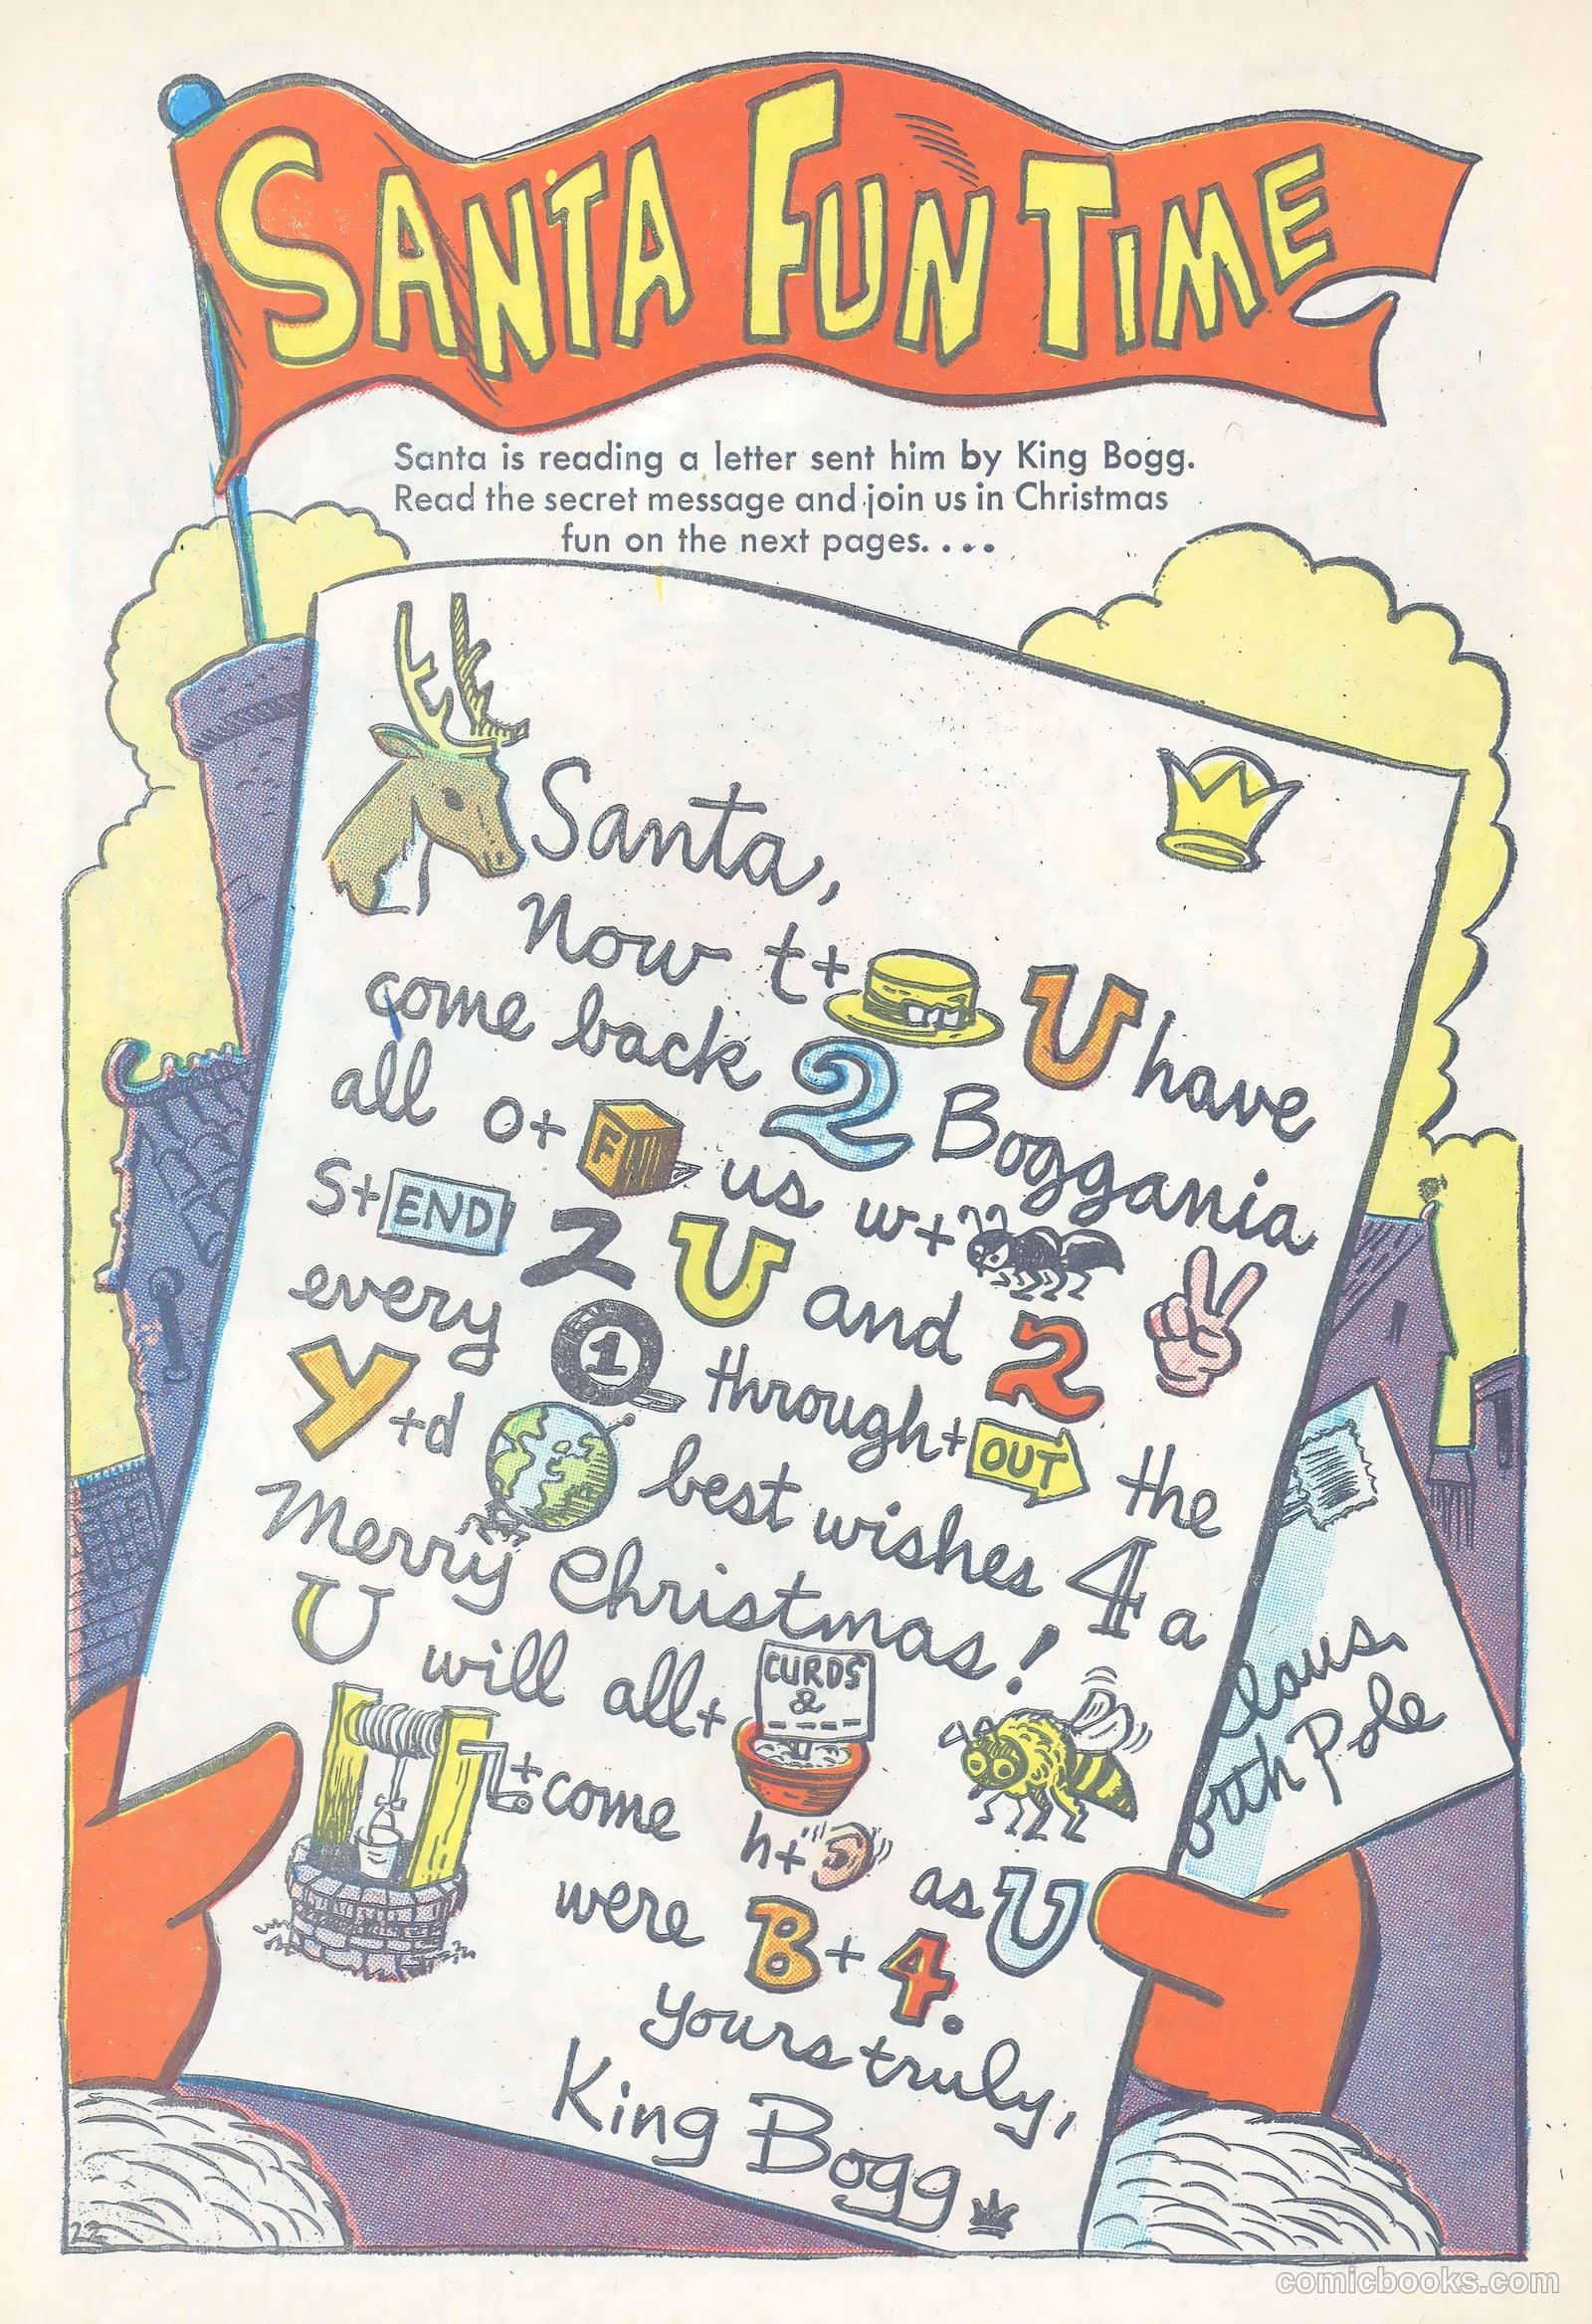 SANTA FUN TIME
Santa is reading a letter sent him by King Bogg.
Read the secret message and join us in Christmas
fun on the next pages. . . .
Santa,
Now t+ U have
come back 2 Boggania
all o+ F us w+
S+ END 2 U and 2
every 1 through+ OUT the
Y+d best wishes 4 a
Merry Christmas!
U will all+ CURDS & _ _ _ _
+come h+ as U
were B+4.
Yours truly,
King Bogg
Claus
orth Pole
22
comicbooks.com